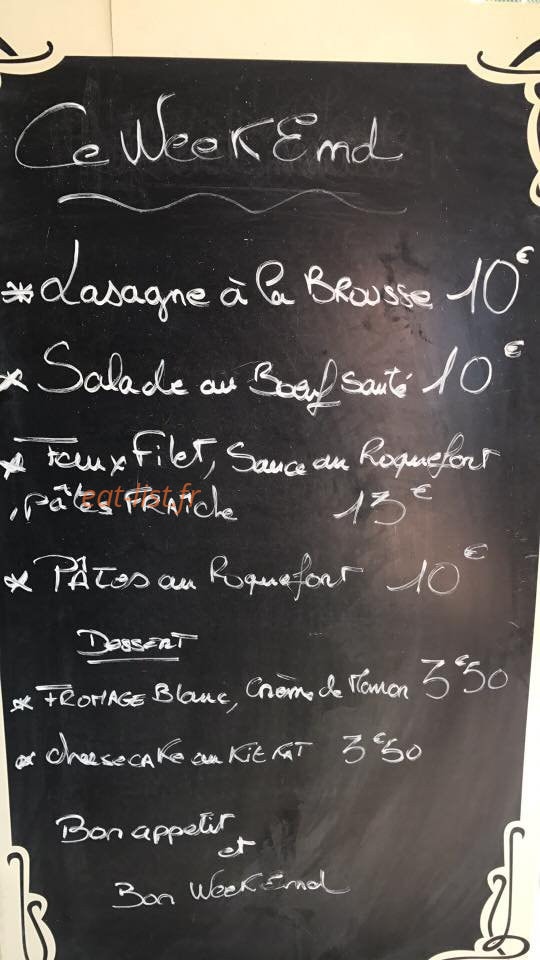 Ce WeekEnd
* Lasagne à la Brousse 10€
* Salade au Boeuf sauté 10€
* Faux Filet, Sauce au Roquefort
, pâtes FRAÎche 13€
eat-list.fr
* PÂTES au Roquefort 10€
Dessert
* FROMAGE Blanc, Crème de Marron 3€50
* cheesecake au KitKat 3€50
Bon appetit
et
Bon WeekEnd